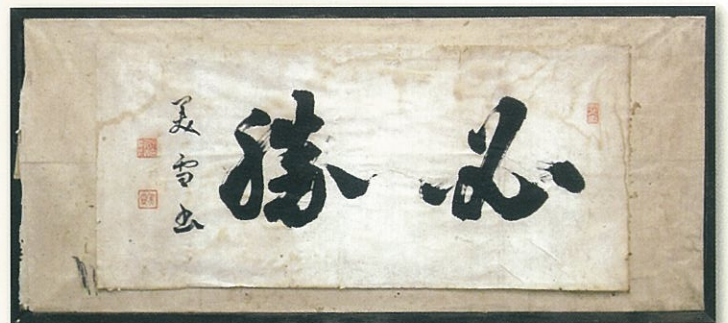 必勝
美雪書